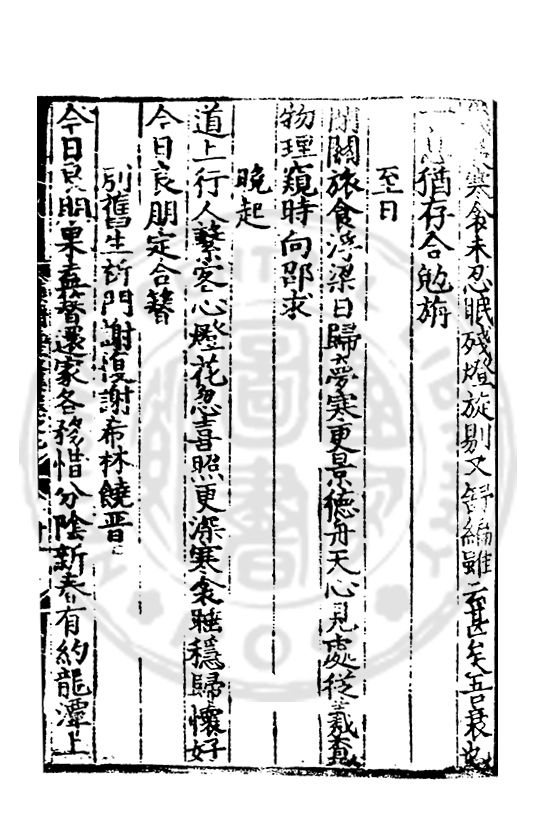 寒衾未忍眠殘燈旋剔又舒編雖云甚矣吾衰也
一息猶存合勉旃
至日
閉關旅食浮梁日歸夢寒更景德舟天心見處從羲畫
物理窺時向邵求
晚起
道上行人繫客心燈花忽喜照更深寒衾睡穩歸懷好
今日良朋定合簪
別舊生祈門謝復謝希林饒晋
今日良朋果盍簪還家各務惜分陰新春有約龍潭上